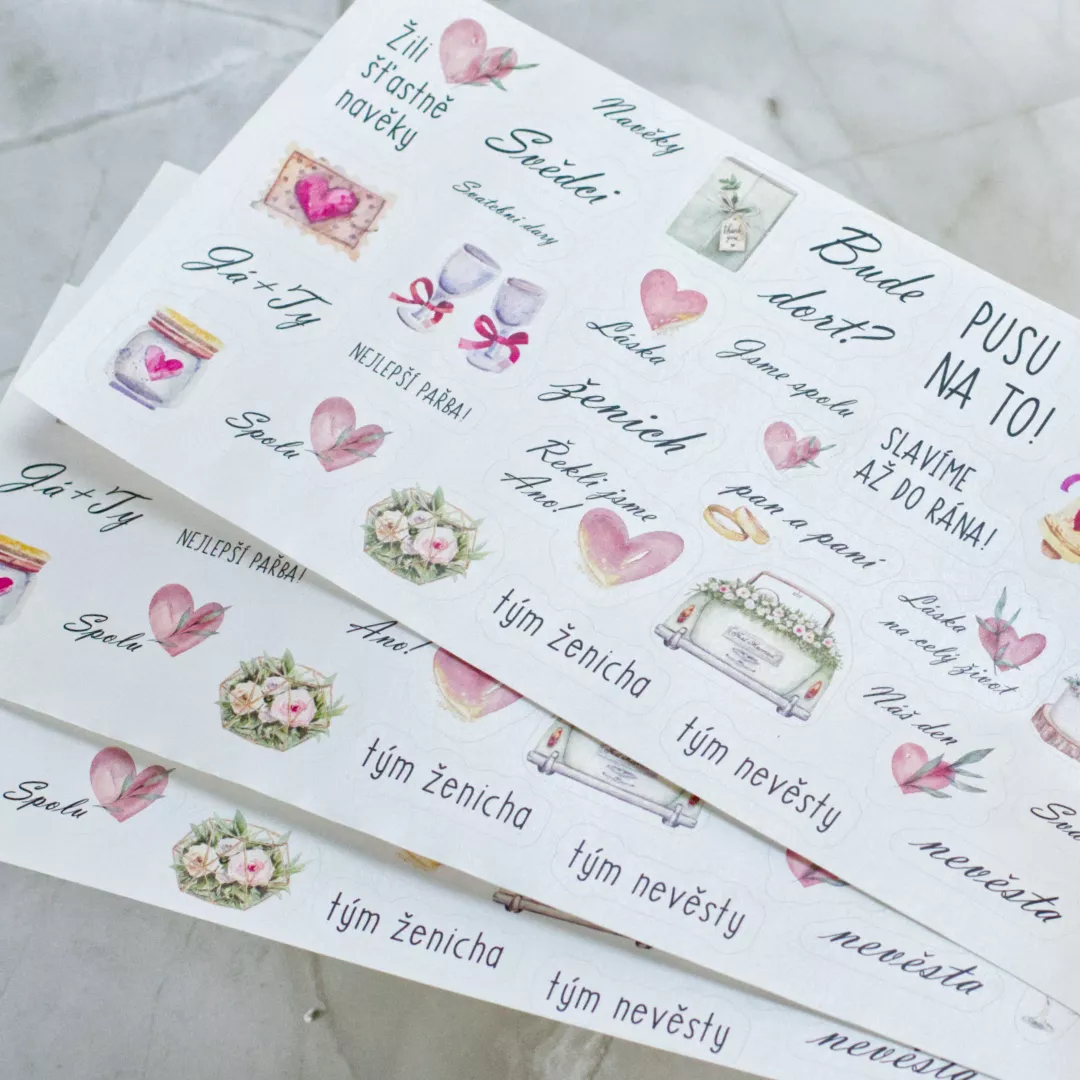 Žili
šťastně
navěky
Navěky
Svědci
Svatební dary
Thank
you
Bude
dort?
PUSU
NA TO!
Já+Ty
Láska
Jsme spolu
NEJLEPŠÍ PAŘBA!
ženich
SLAVÍME
AŽ DO RÁNA!
Spolu
Řekli jsme
Ano!
pan a paní
tým ženicha
Láska
na celý život
Náš den
tým nevěsty
nevěsta
Já+Ty
NEJLEPŠÍ PAŘBA!
Spolu
Ano!
tým ženicha
tým nevěsty
nevěsta
Spolu
tým ženicha
tým nevěsty
nevěsta